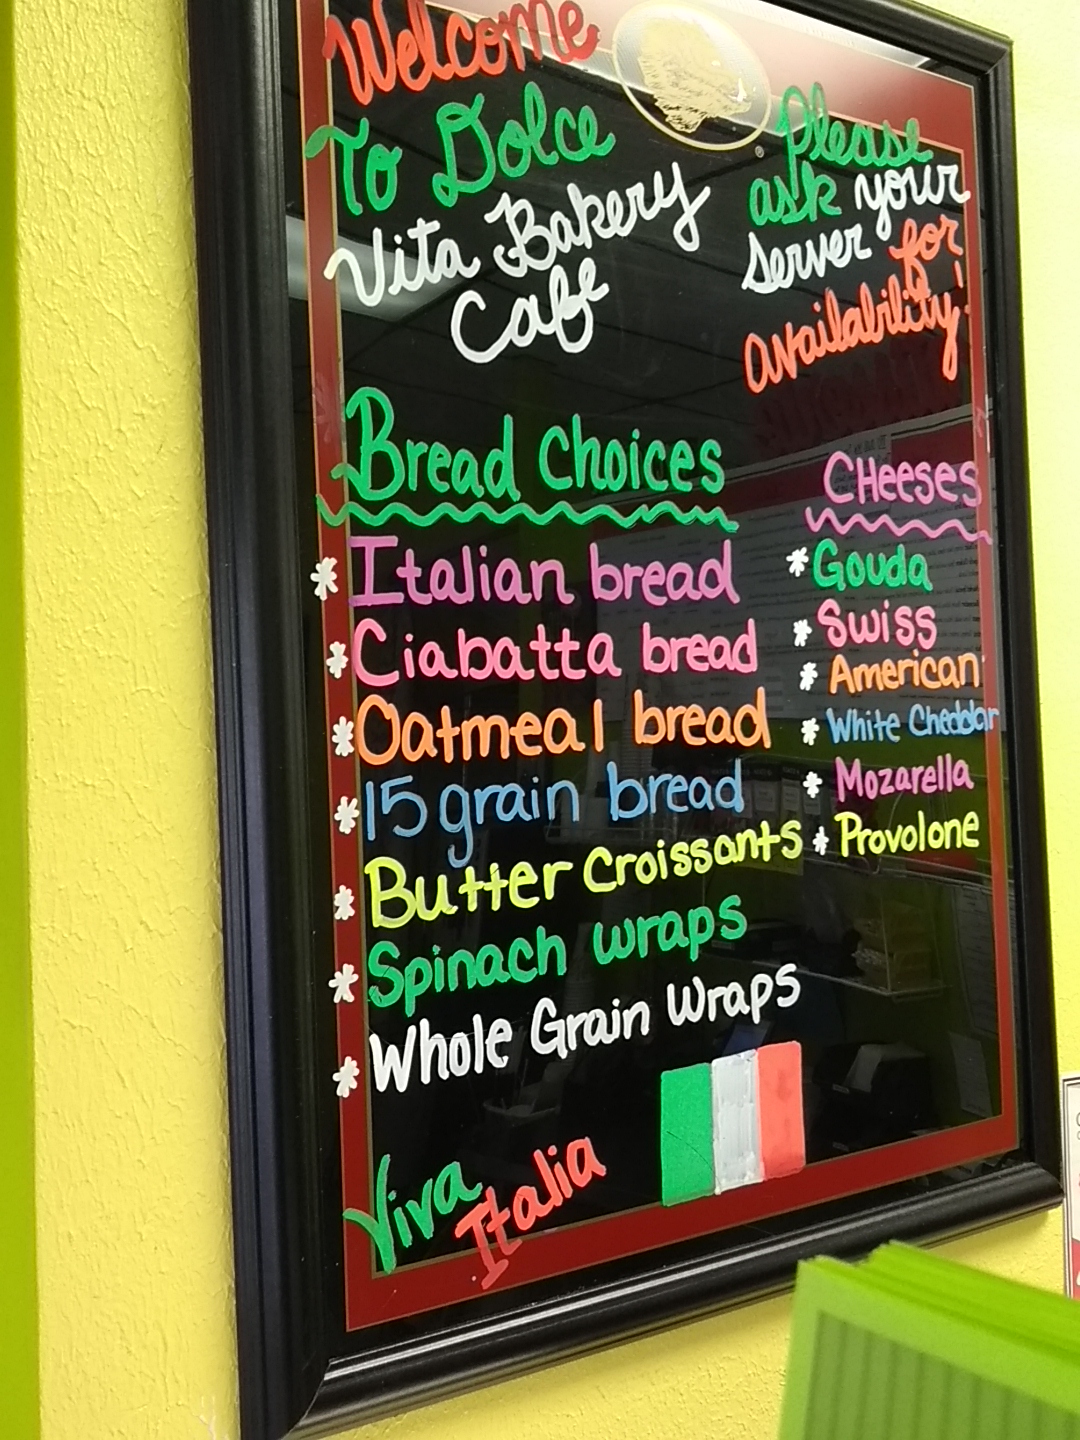 Welcome
To Dolce
Vita Bakery
Cafe
Please
ask your
server for
availability!
Bread Choices
* Italian bread
* Ciabatta bread
* Oatmeal bread
* 15 grain bread
* Butter Croissants
* Spinach wraps
* Whole Grain Wraps
CHeeses
* Gouda
* Swiss
* American
* White Cheddar
* Mozarella
* Provolone
Viva
Italia